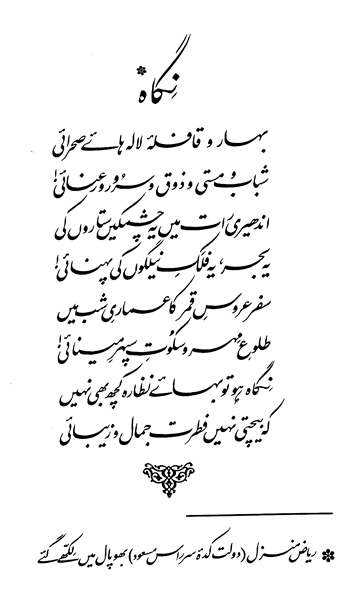 نگاہ*
بہار و قافلۂ لالہ ہائے صحرائی
شباب و مستی و ذوق و سرور و رعنائی!
اندھیری رات میں یہ چشمکیں ستاروں کی
یہ بحر، یہ فلکِ نیلگوں کی پہنائی!
سفر عروسِ قمر کا عماریِ شب میں
طلوعِ مہر و سکوتِ سپہرِ مینائی!
نگاہ ہو تو بہائے نظارہ کچھ بھی نہیں
کہ بیچتی نہیں فطرت جمال و زیبائی
* ریاض منزل (دولت کدۂ سر راس مسعود) بھوپال میں لکھے گئے